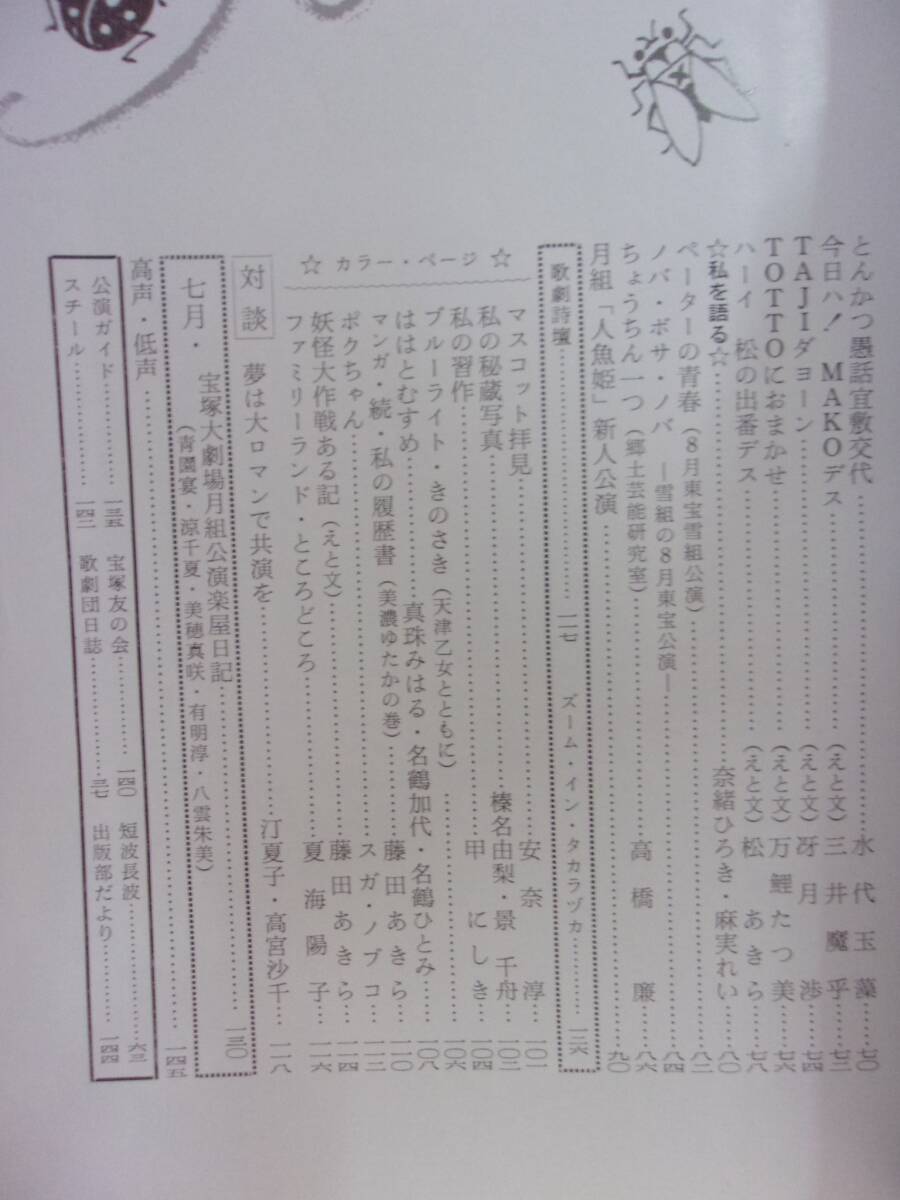 とんかつ愚話宜敷交代……水代玉藻…七〇
今日ハ！　MAKOデス（えと文）三井魔乎…七三
TAJIダヨーン……（えと文）冴月渉…七四
TOTTOにおまかせ……（えと文）万鯉たつ美…七六
ハーイ　松の出番デス……（えと文）松あきら…七八
☆私を語る☆……奈緒ひろき・麻実れい…八〇
ペーターの青春（８月東宝雪組公演）……八二
ノバ・ボサ・ノバ―雪組の８月東宝公演―……八四
ちょうちん一つ（郷土芸能研究室）……高橋廉…八六
月組「人魚姫」新人公演……九〇
歌劇詩壇……一二七　ズーム・イン・タカラヅカ……一三六
☆　カラー・ページ　☆
マスコット拝見……安奈淳…一〇一
私の秘蔵写真……榛名由梨・景千舟…一〇三
私の習作……甲にしき…一〇四
ブルーライト・きのさき（天津乙女とともに）……一〇六
ははとむすめ……真珠みはる・名鶴加代・名鶴ひとみ…一〇八
マンガ・続・私の履歴書（美濃ゆたかの巻）……藤田あきら…一一〇
ボクちゃん……スガ・ノブコ…一一二
妖怪大作戦ある記（えと文）……藤田あきら…一一四
ファミリーランド・ところどころ……夏海陽子…一一六
対談　夢は大ロマンで共演を……汀夏子・高宮沙千…一一八
七月・宝塚大劇場月組公演楽屋日記……一三〇
（青園宴・涼千夏・美穂真咲・有明淳・八雲朱美）
高声・低声……一四五
公演ガイド……一三五　宝塚友の会……一四〇　短波長波……六三
スチール……一四二　歌劇団日誌……三七　出版部だより……一四四